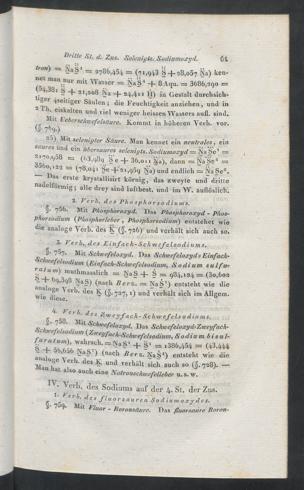 Dritte St. d. Zus. Selenigts. Sodiumoxyd. 61
tron) = N̈a S̈² = 2786,454 = (71,943 S̈ + 28,057 N̈a) ken-
net man nur mit Wasser = N̈a S̈² + 8 Aqu. = 3686,299 =
(54,381 S̈ + 21,208 N̈a + 24,411 Ḧ) in Gestalt durchsich-
tiger 4seitiger Säulen; die Feuchtigkeit anziehen, und in
2 Th. eiskalten und viel weniger heissen Wassers aufl. sind.
Mit Ueberschwefelsäure. Kommt in höheren Verb. vor.
(§. 789.)
25) Mit selenigter Säure. Man kennet ein neutrales, ein
saures und ein übersaures selenigts. Sodiumoxyd = N̈a S̈e² =
— Das erste krystallisirt körnig, das zweyte und dritte
nadelförmig; alle drey sind luftbest. und im W. auflöslich.
2. Verb. des Phosphorsodiums.
§. 756. Mit Phosphoroxyd. Das Phosphoroxyd-Phos-
phorsodium (Phosphorleber, Phosphorsodium) entstehet wie
die analoge Verb. des K (§. 726) und verhält sich auch so.
3. Verb. des Einfach-Schwefelsodiums.
§. 757. Mit Schwefeloxyd. Das Schwefeloxyd-Einfach-
Schwefelsodium (Einfach-Schwefelsodium, Sodium sulfu-
ratum) muthmasslich = N̈a S + S̈ = 984,124 = (30,602
S̈ + 69,398 N̈a S) (nach Berz. = N̈a S²) entsteht wie die
analoge Verb. des K (§. 727, 1) und verhält sich im Allgem.
wie diese.
4. Verb. des Zweyfach-Schwefelsodiums.
§. 758. Mit Schwefeloxyd. Das Schwefeloxyd-Zweyfach-
Schwefelsodium (Zweyfach-Schwefelsodium, Sodium bisul-
furatum), wahrsch. = N̈a S² + S̈² = 1386,454 = (43,444
S̈ + 56,556 N̈a S²) (nach Berz. N̈a S⁴) entsteht wie die
analoge Verb. des K und verhält sich auch so (§. 728). —
Man hat also auch eine Natronschwefelleber u. s. w.
IV. Verb. des Sodiums auf der 4. St. der Zus.
1. Verb. des fluorsauren Sodiumoxydes.
§. 759. Mit Fluor-Boronsäure. Das fluorsaure Boron-